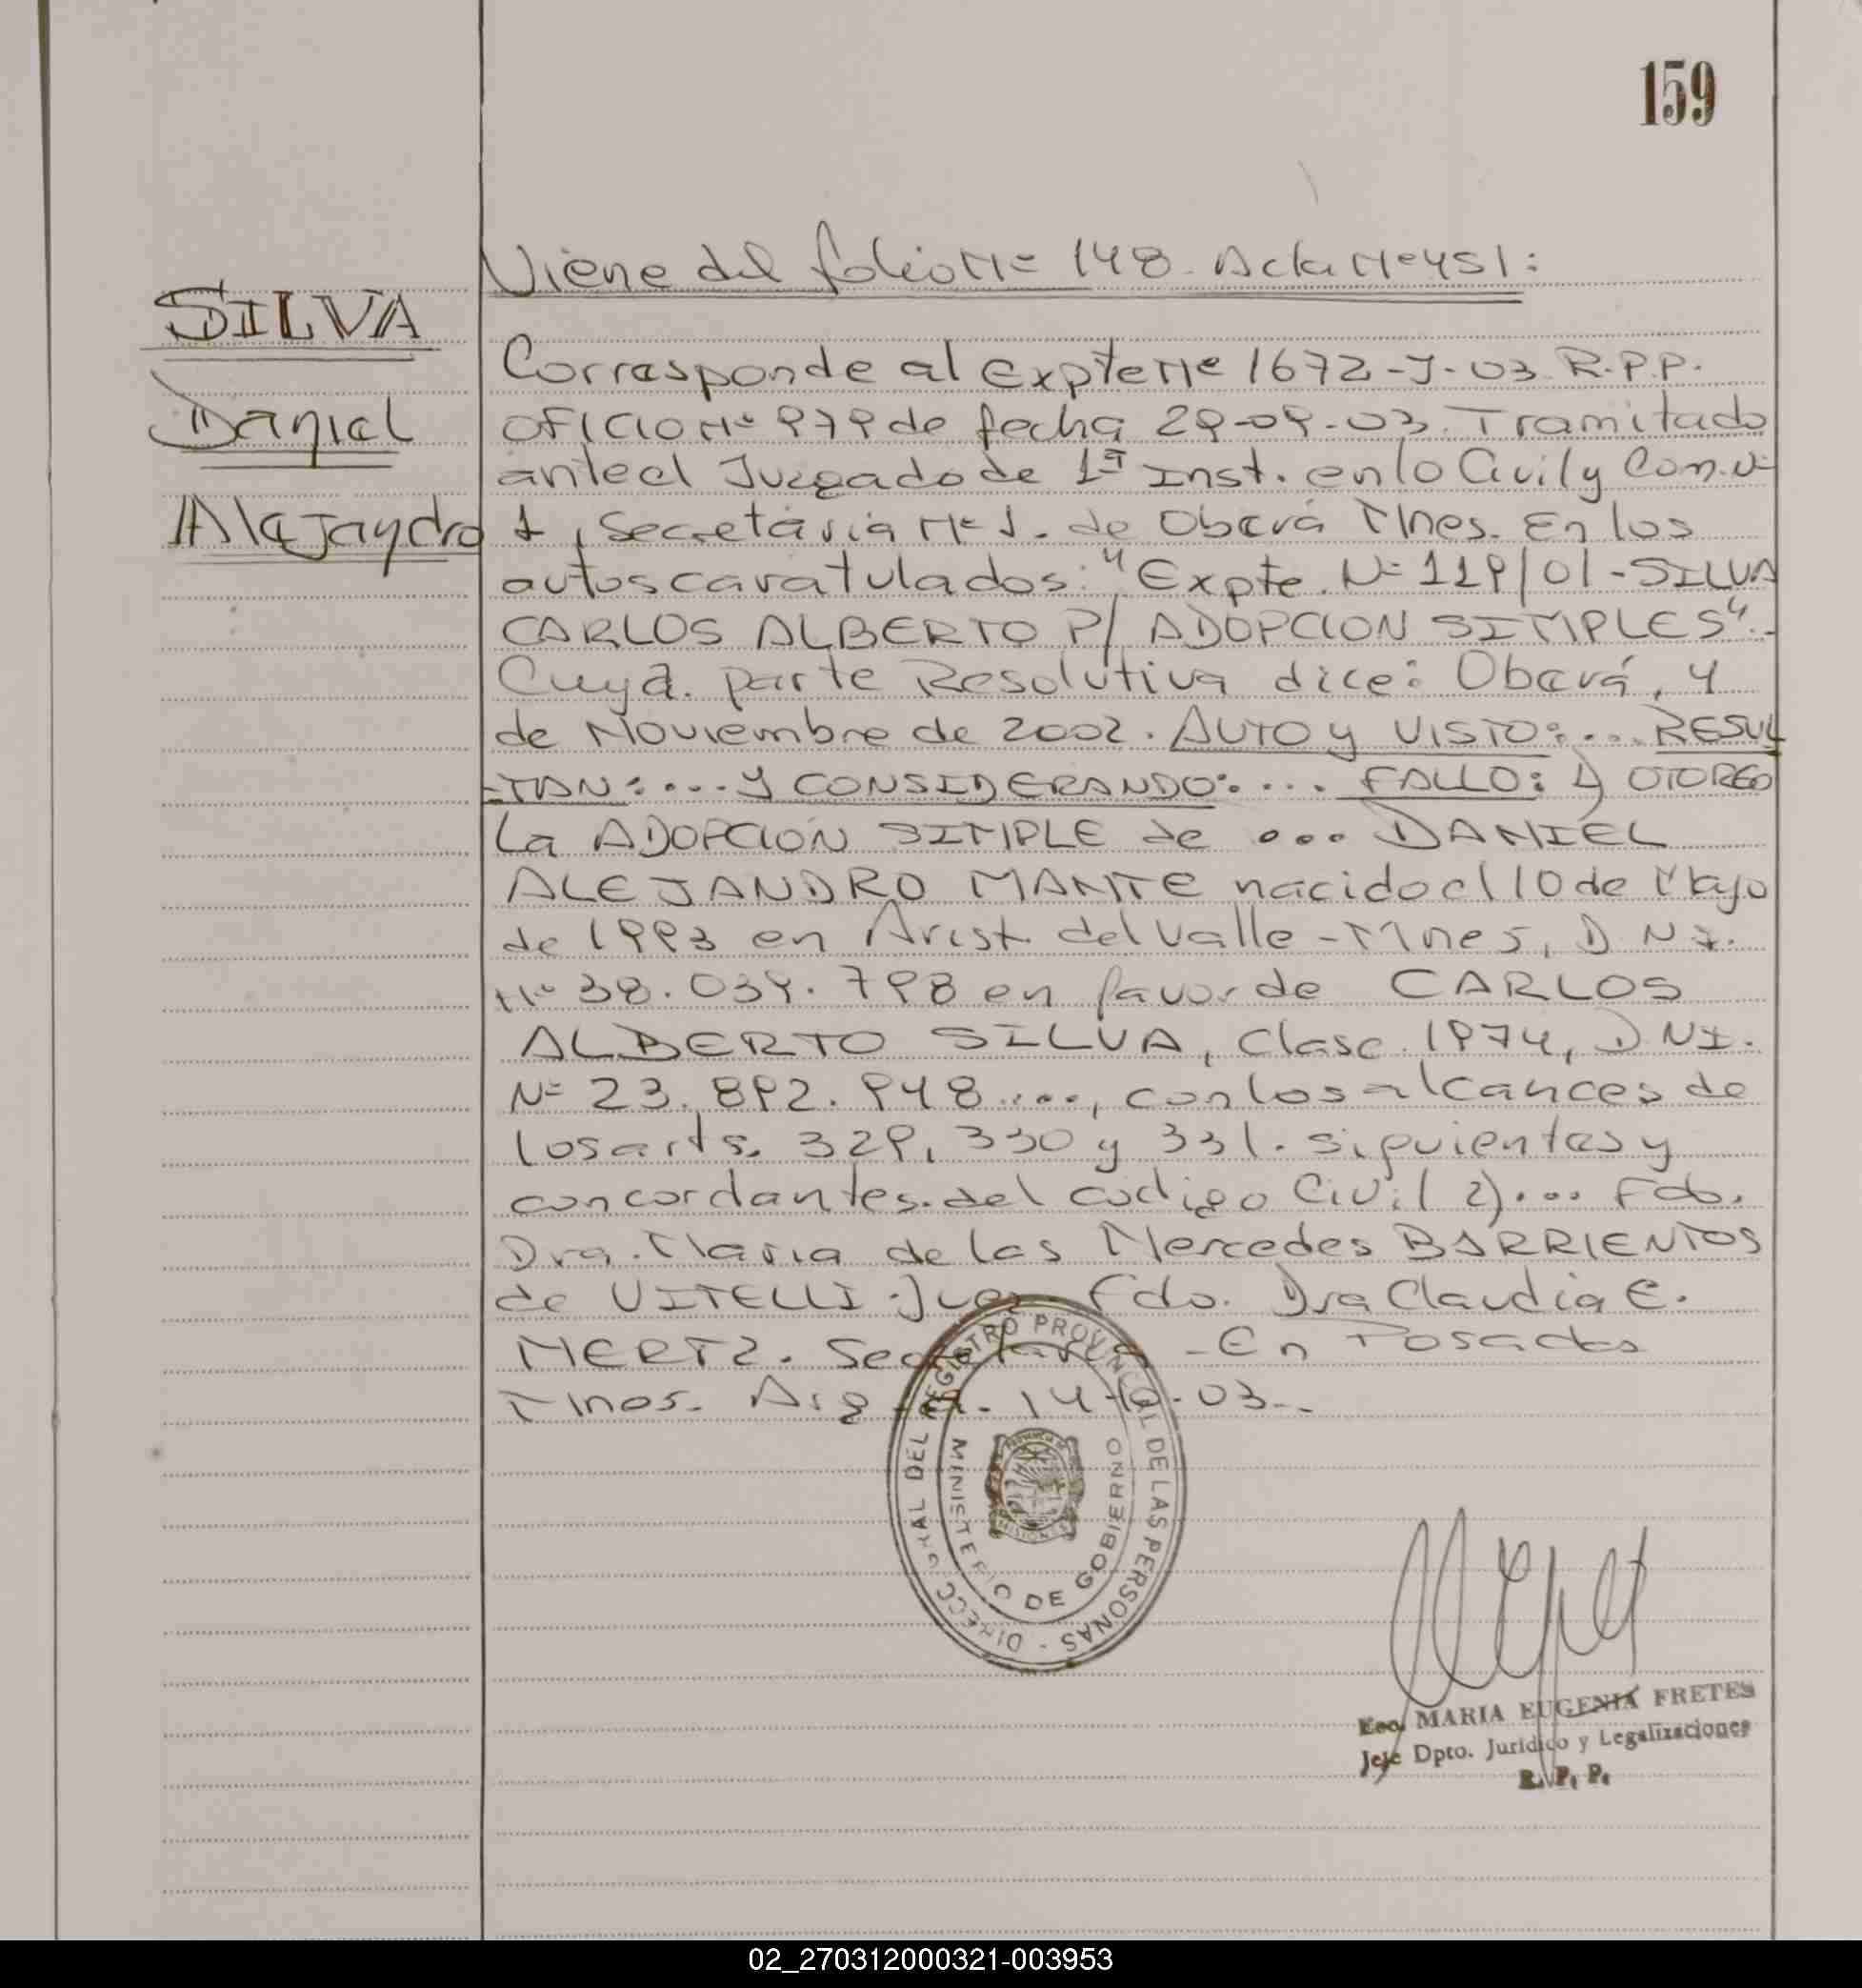 159
Viene del folio Nº 148. Acta Nº 451:
SILVA
Daniel
Alejandro
Corresponde al Expte Nº 1672-J-03 R.P.P.
OFICIO Nº 979 de fecha 29-09-03. Tramitado
ante el Juzgado de 1ª Inst. en lo Civil y Com. Nº
1, Secretaria Nº 1. de Oberá Mnes. En los
autos caratulados: "Expte. Nº 119/01-SILVA
CARLOS ALBERTO P/ ADOPCION SIMPLES".-
Cuya parte Resolutiva dice: Oberá, 4
de Noviembre de 2002. AUTO y VISTO:... RESUL
-TAN:... Y CONSIDERANDO:... FALLO: 1) OTORGO
La ADOPCIÓN SIMPLE de ... DANIEL
ALEJANDRO MANTE nacido el 10 de Mayo
de 1993 en Arist. del Valle-Mnes, DNI.
Nº 38.039.798 en favor de CARLOS
ALBERTO SILVA, Clase 1974, DNI.
Nº 23.892.948 ...., con los alcances de
los arts. 329, 330 y 331. siguientes y
concordantes del codigo Civil 2)... Fdo.
Dra. Maria de las Mercedes BARRIENTOS
de VITELLI. Juez. Fdo. Dra Claudia E.
MERTZ. Secretaria -En Posadas
Mnes. Arg. 14-10-03.-
DIRECC GRAL DEL REGISTRO PROVINCIAL DE LAS PERSONAS -
MINISTERIO DE GOBIERNO
PROVINCIA DE
MISIONES
Esc. MARIA EUGENIA FRETES
Jefe Dpto. Jurídico y Legalizaciones
R. P. P.
02_270312000321-003953